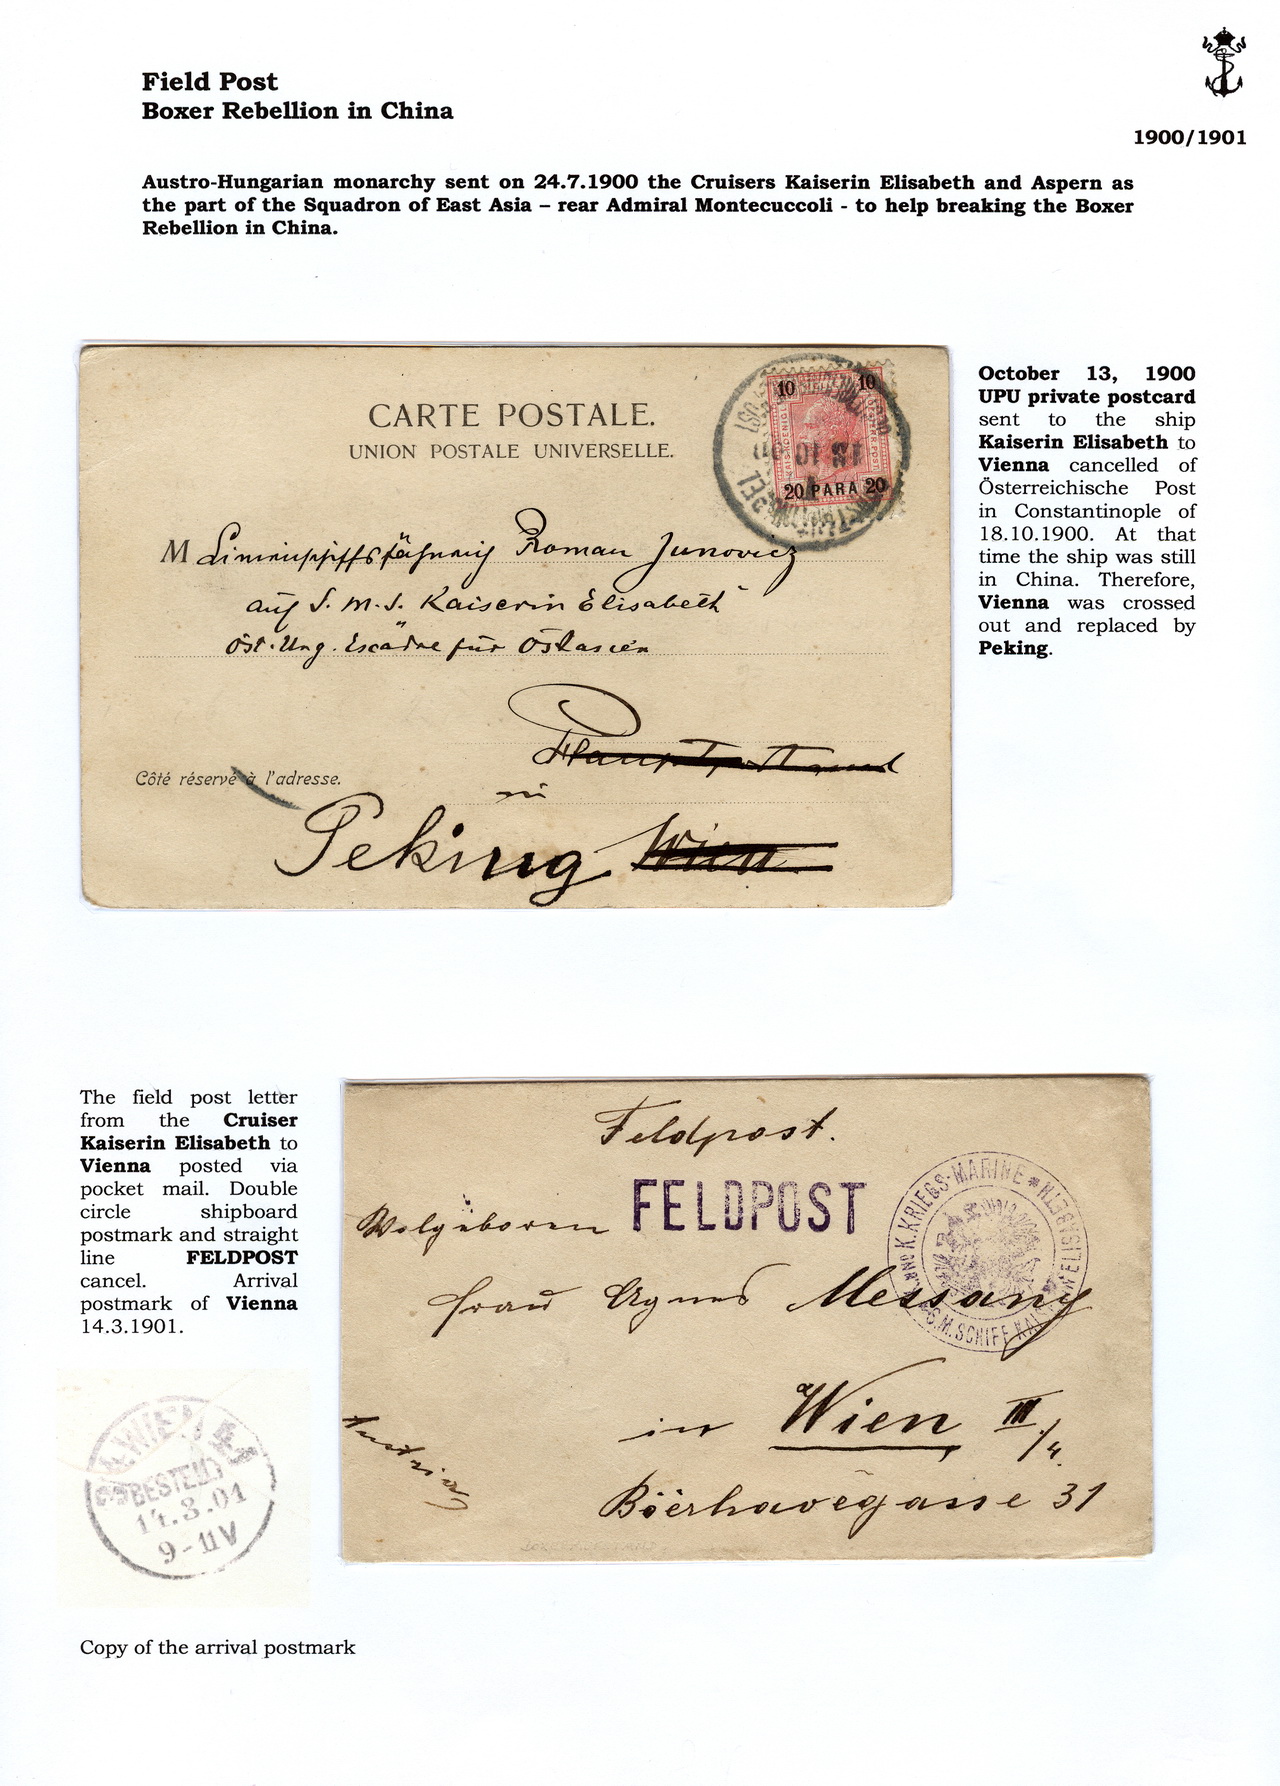 Field Post
Boxer Rebellion in China
1900/1901
Austro-Hungarian monarchy sent on 24.7.1900 the Cruisers Kaiserin Elisabeth and Aspern as
the part of the Squadron of East Asia – rear Admiral Montecuccoli - to help breaking the Boxer
Rebellion in China.
CARTE POSTALE.
UNION POSTALE UNIVERSELLE.
10 10
20 PARA 20
M Linienschiffsfähnrich Roman Junovicz
auf S. M. S. Kaiserin Elisabeth
Öst. Ung. Escadre für Ostasien
Côté réservé à l'adresse.
in
Peking Wien
October 13, 1900
UPU private postcard
sent to the ship
Kaiserin Elisabeth to
Vienna cancelled of
Österreichische Post
in Constantinople of
18.10.1900. At that
time the ship was still
in China. Therefore,
Vienna was crossed
out and replaced by
Peking.
The field post letter
from the Cruiser
Kaiserin Elisabeth to
Vienna posted via
pocket mail. Double
circle shipboard
postmark and straight
line FELDPOST
cancel. Arrival
postmark of Vienna
14.3.1901.
Feldpost.
FELDPOST
Wolgeboren
K. KRIEGS-MARINE
S.M. SCHIFF KAISERIN ELISABETH
Frau Agnes Messany
in Wien III/4.
Boërhavegasse 31
Austria
WIEN
BESTELLT
14.3.01
9-11V
Copy of the arrival postmark